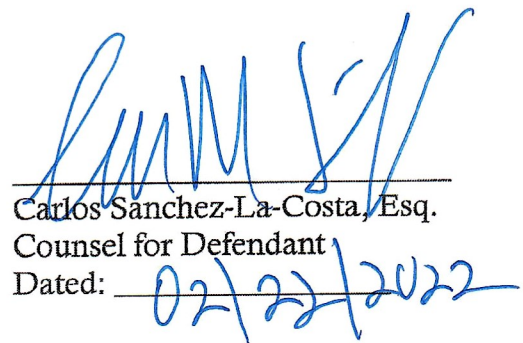 Carlos Sanchez-La-Costa, Esq.
Counsel for Defendant
Dated: 02/22/2022